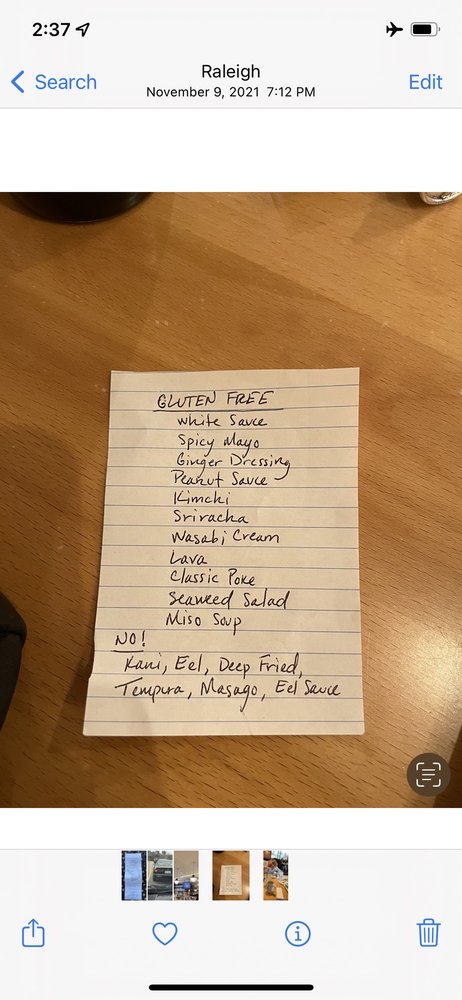 2:37
Search
Raleigh
November 9, 2021 7:12 PM
Edit
GLUTEN FREE
White Sauce
Spicy Mayo
Ginger Dressing
Peanut Sauce
Kimchi
Sriracha
Wasabi Cream
Lava
Classic Poke
Seaweed Salad
Miso Soup
NO!
Kani, Eel, Deep Fried,
Tempura, Masago, Eel Sauce